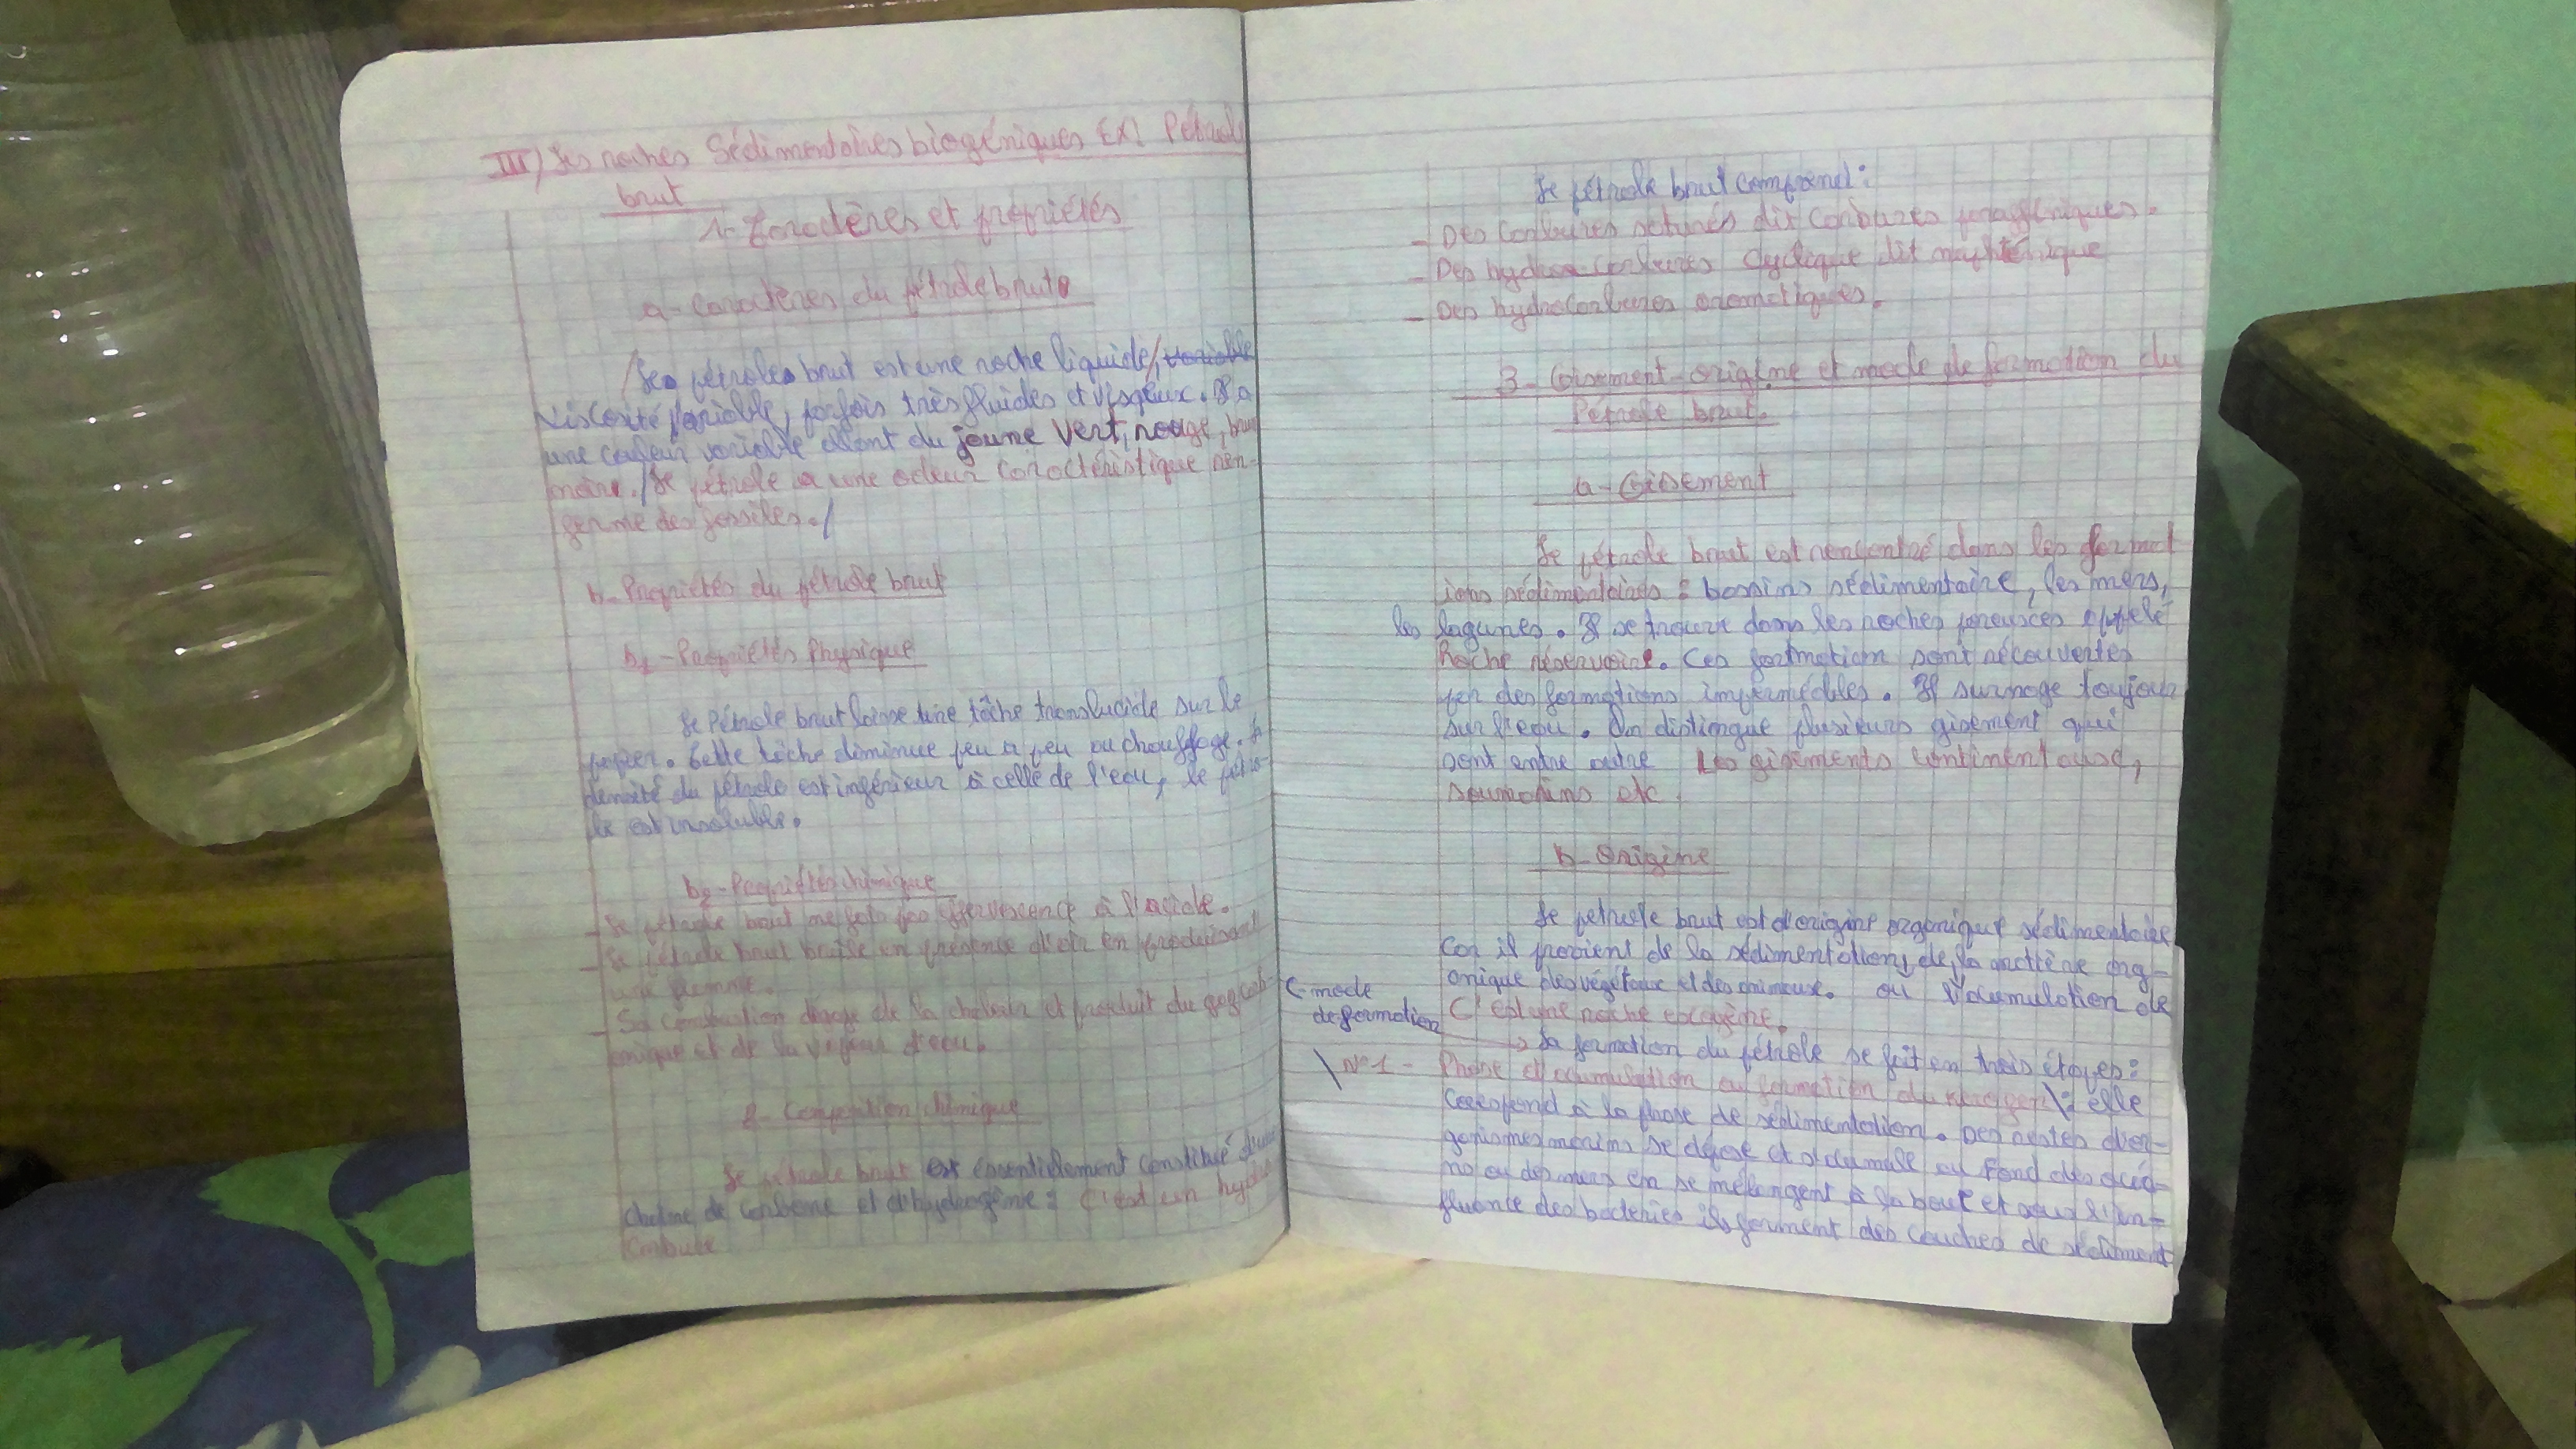 III) Les roches Sédimentaires biogéniques EX: Pétrole
brut
1- Caractères et propriétés
a- Caractères du pétrole brut
Le pétrole brut est une roche liquide, variable
Viscosité variable, parfois très fluides et visqeux. Il a
une couleur variable allant du jaune vert, rouge, brun
noire. Le pétrole a une odeur caractéristique ren-
ferme des fossiles.
b- Propriétés du pétrole brut
b1- Propriétés Physique
Le Pétrole brut laisse une tâche translucide sur le
papier. Cette tâche diminue peu a peu au chauffage. la
densité du pétrole est inférieur à celle de l'eau, le pétro-
le est insoluble.
b2- Propriétés chimique
- Le pétrole brut ne fait pas effervescence à l'acide.
- Le pétrole brut brûle en présence d'air en produisant
une flamme.
- Sa combustion dégage de la chaleur et produit du gaz carb-
onique et de la vapeur d'eau.
2- Composition chimique
Le pétrole brut est essentielement constitué d'une
chaîne de carbone et d'hydrogène : C'est un hydro
carbure
Le pétrole brut comprend :
- Des carbures saturés dit carbures
- Des hydro carbures cyclique dit
- Des hydrocarbures aromatiques.
3- Gisement- origine et mode de formation du
Pétrole brut.
a- Gisement
Le pétrole brut est rencontré dans les format
ions sédimentaires : bassins sédimentaire, les mers,
les lagunes. Il se trouve dans les roches appelé
Roche réservoire. Ces formation sont récouvertes
par des formations imperméables. Il surnage toujours
sur l'eau. On distingue plusieurs gisement qui
sont entre autre les gisements continentause,
soumarins etc.
b- Origine
Le petrole brut est d'origine organique sédimentaire
Car il provient de la sédimentation de la matière org-
anique des végétaux et des animaux. ou l'acumulation de
C'est une roche exogène.
C- mode
de formation
La formation du pétrole se fait en trois étapes :
N°1 - Phase d'accumulation ou formation du : elle
Correspond à la phase de sédimentation. Des restes d'or-
ganismes marins se dépose et au Fond des océa-
ns ou des mers en se mélangent à la boue et sous l'in-
fluence des bactéries ils forment des couches de sédiment